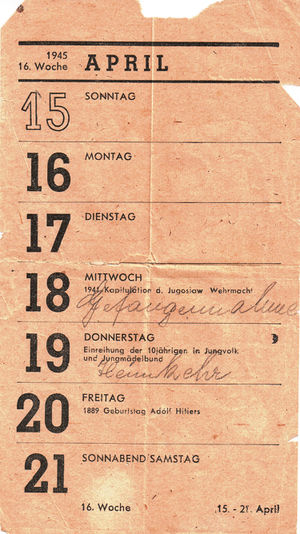 1945
16. Woche
APRIL
15 SONNTAG
16 MONTAG
17 DIENSTAG
18 MITTWOCH
1941 Kapitulation d. Jugoslaw Wehrmacht
Gefangennahme
19 DONNERSTAG
Einreihung der 10jährigen in Jungvolk
und Jungmädelbund
Heimkehr
20 FREITAG
1889 Geburtstag Adolf Hitlers
21 SONNABEND/SAMSTAG
16. Woche 15. - 21. April